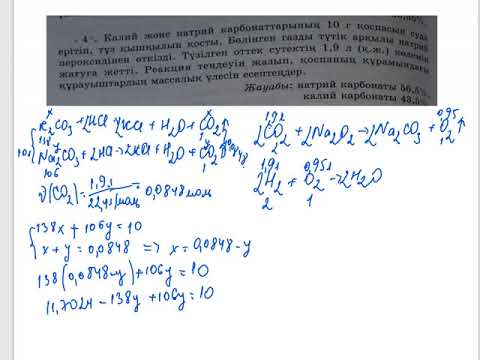 - 4 - Калий және натрий карбонаттарының 10 г қоспасын суда
ерітіп, тұз қышқылын қосты. Бөлінген газды түтік арқылы натрий
пероксидінен өткізді. Түзілген оттек сутектің 1,9 л (қ.ж.) көлемін
жағуға жетті. Реакция теңдеуін жазып, қоспаның құрамындағы
құрауыштардың массалық үлесін есептеңдер.
Жауабы: натрий карбонаты 56,5%,
калий карбонаты 43,5%.
K₂CO₃ + 2HCl → 2KCl + H₂O + CO₂↑
Na₂CO₃ + 2HCl → 2NaCl + H₂O + CO₂↑
106
2CO₂ + 2Na₂O₂ → 2Na₂CO₃ + O₂↑
2H₂ + O₂ → 2H₂O
2 1
ν(CO₂) = 1,9л / 22,4л/моль = 0,0848 моль
138x + 106y = 10
x + y = 0,0848 => x = 0,0848 - y
138(0,0848-y) + 106y = 10
11,7024 - 138y + 106y = 10